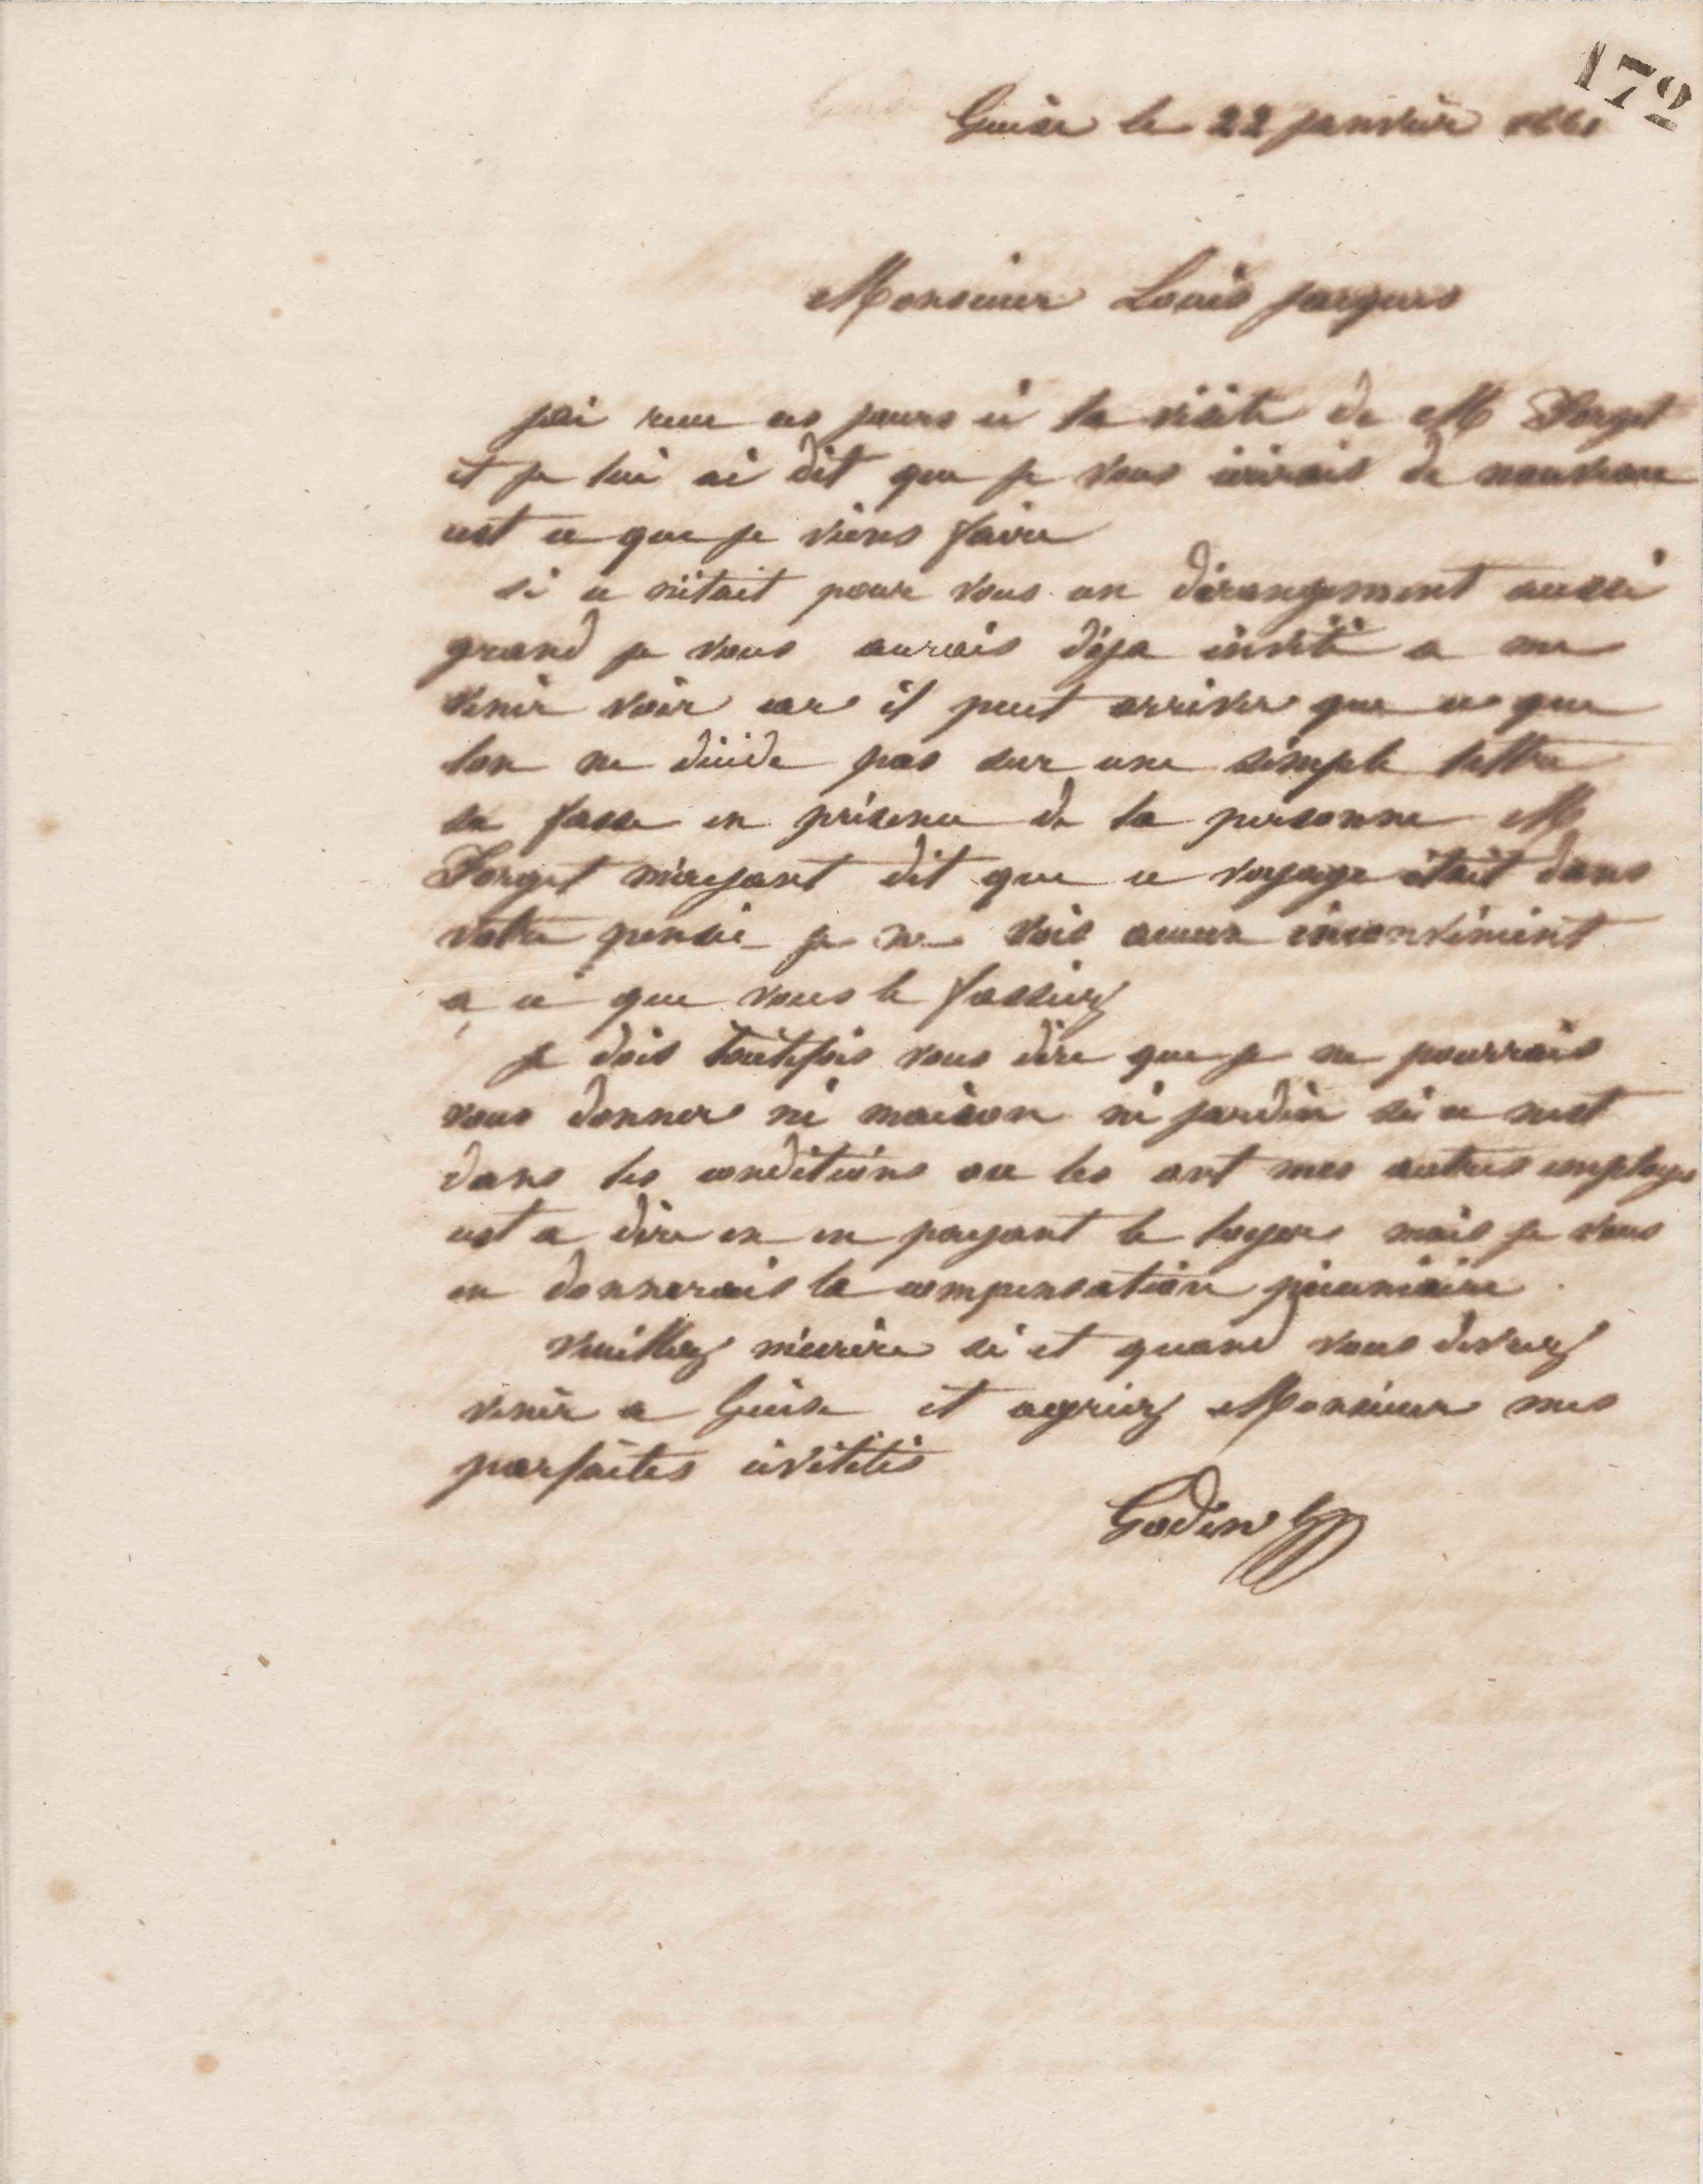 172
Guise le 22 janvier
Monsieur Louis Jacques
jai reçu ces jours ci la visite de M Forget
et je lui ai dit que je vous écrirais de nouveau
cest ce que je viens faire
si ce nétait pour vous un dérangement aussi
grand je vous aurais déja invité a me
venir voir car il peut arriver que ce que
lon ne décide pas sur une simple lettre
se fasse en présence de la personne M
Forget m'ayant dit que ce voyage était dans
votre pensée je ne vois aucun inconvénient
a ce que vous le fassiez
je dois toutefois vous dire que je ne pourrais
vous donner ni maison ni jardin si ce nest
dans les conditions ou les ont mes autres employés
cest a dire en en payant le loyer mais je vous
en donnerais la compensation pécuniaire.
veuillez m'écrire si et quand vous devrez
venir a Guise et agréez Monsieur mes
parfaites civilités
Godin